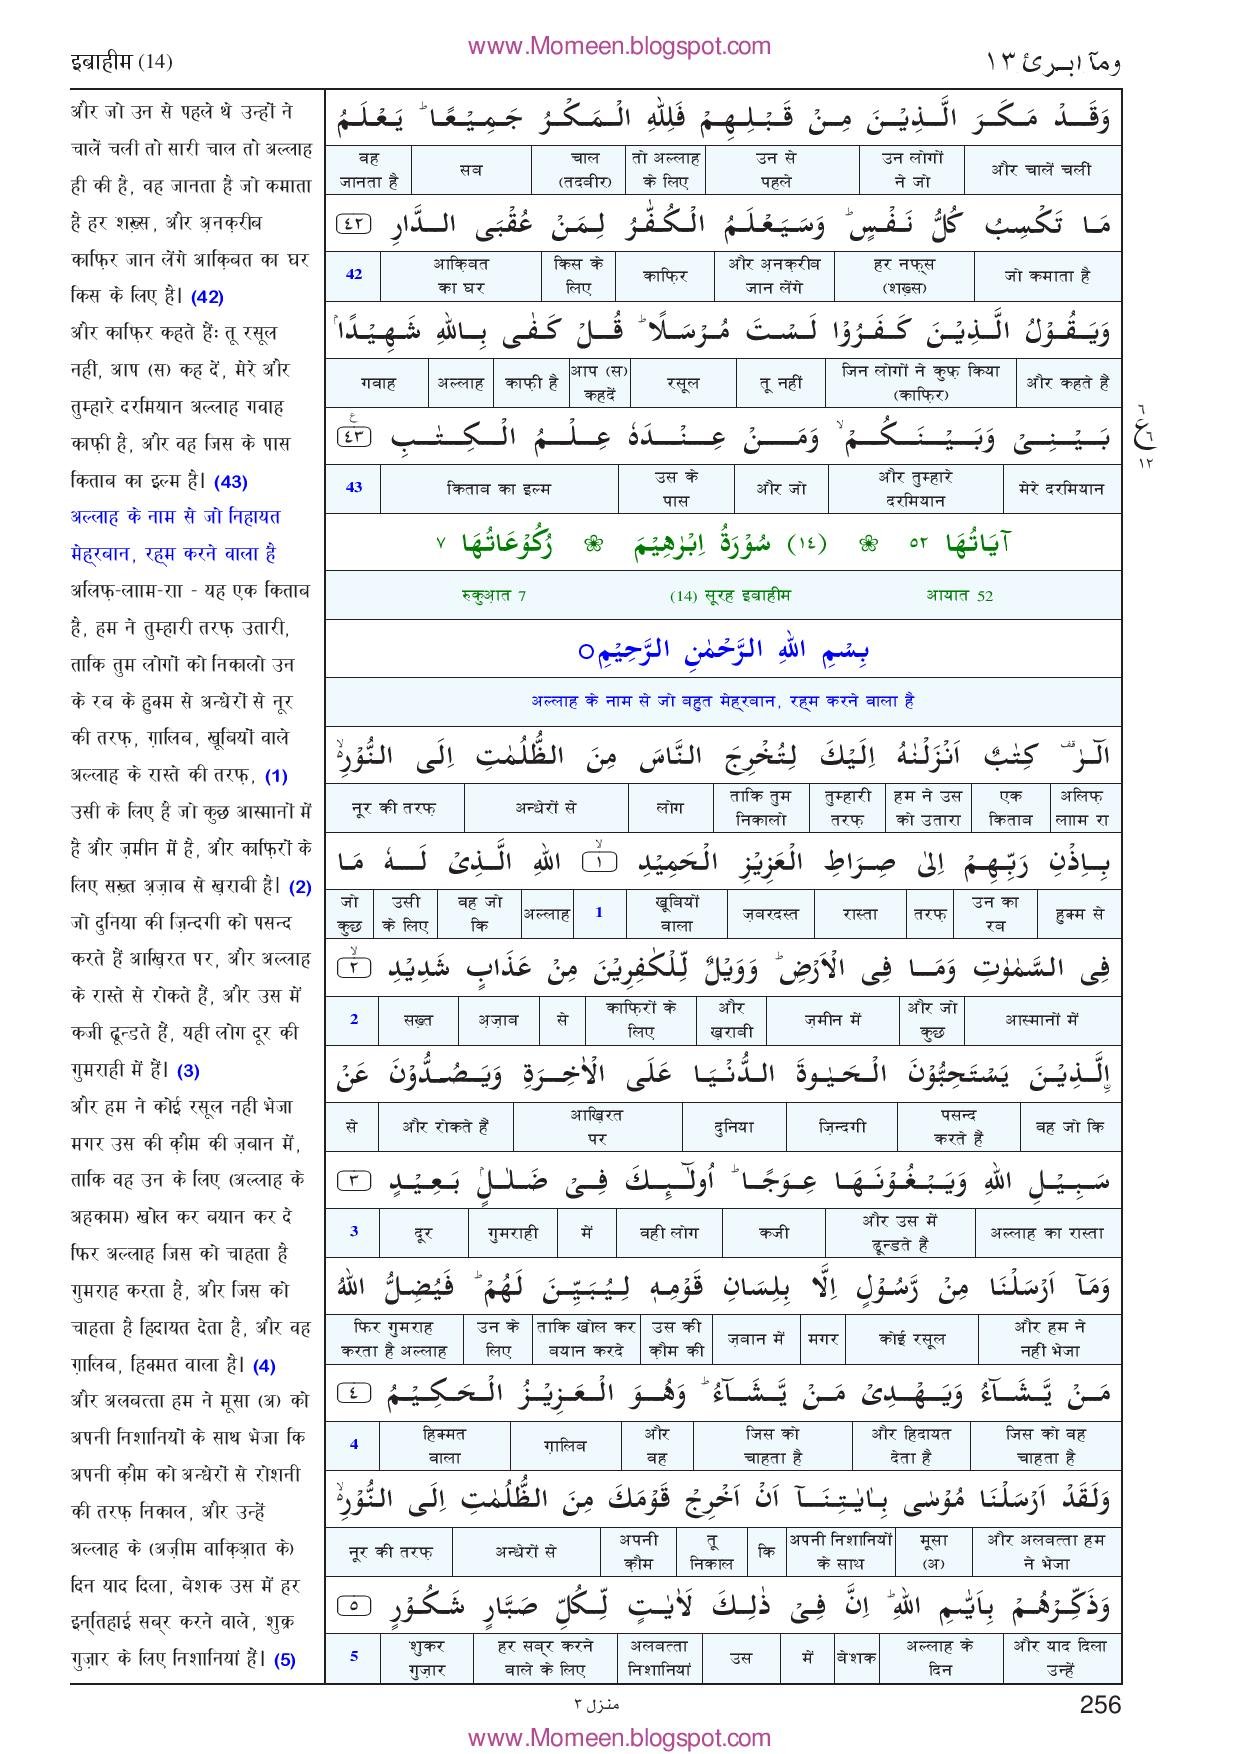 www.Momeen.blogspot.com
इब्राहीम (14)
ومآ ابـرئ ١٣
और जो उन से पहले थे उन्हों ने
चालें चलीं तो सारी चाल तो अल्लाह
ही की है, वह जानता है जो कमाता
है हर शख़्स, और अ़नक़रीब
काफ़िर जान लेंगे आक़िबत का घर
किस के लिए है। (42)
और काफ़िर कहते हैंः तू रसूल
नहीं, आप (स) कह दें, मेरे और
तुम्हारे दरमियान अल्लाह गवाह
काफ़ी है, और वह जिस के पास
किताब का इल्म है। (43)
अल्लाह के नाम से जो निहायत
मेह्‌रबान, रह्‌म करने वाला है
अलिफ़-लााम-राा - यह एक किताब
है, हम ने तुम्हारी तरफ़ उतारी,
ताकि तुम लोगों को निकालो उन
के रब के हुक्म से अन्धेरों से नूर
की तरफ़, ग़ालिब, ख़ूबियों वाले
अल्लाह के रास्ते की तरफ़, (1)
उसी के लिए है जो कुछ आस्मानों में
है और ज़मीन में है, और काफ़िरों के
लिए सख़्त अ़ज़ाब से ख़राबी है। (2)
जो दुनिया की ज़िन्दगी को पसन्द
करते हैं आख़िरत पर, और अल्लाह
के रास्ते से रोकते हैं, और उस में
कजी ढून्डते हैं, यही लोग दूर की
गुमराही में हैं। (3)
और हम ने कोई रसूल नहीं भेजा
मगर उस की क़ौम की ज़बान में,
ताकि वह उन के लिए (अल्लाह के
अहकाम) खोल कर बयान कर दे
फिर अल्लाह जिस को चाहता है
गुमराह करता है, और जिस को
चाहता है हिदायत देता है, और वह
ग़ालिब, हिक्मत वाला है। (4)
और अलबत्ता हम ने मूसा (अ) को
अपनी निशानियों के साथ भेजा कि
अपनी क़ौम को अन्धेरों से रोशनी
की तरफ़ निकाल, और उन्हें
अल्लाह के (अज़ीम वाक़िआ़त के)
दिन याद दिला, बेशक उस में हर
इन्‌तिहाई सब्‌र करने वाले, शुक्र
गुज़ार के लिए निशानियां हैं। (5)
وَقَدْ مَكَرَ الَّذِيْنَ مِنْ قَبْلِهِمْ فَلِلّٰهِ الْمَكْرُ جَمِيْعًا ؕ يَعْلَمُ
और चालें चलीं उन लोगों ने जो उन से पहले तो अल्लाह के लिए चाल (तदबीर) सब वह जानता है
مَا تَكْسِبُ كُلُّ نَفْسٍ ؕ وَسَيَعْلَمُ الْكُفّٰرُ لِمَنْ عُقْبَى الدَّارِ ٤٢
जो कमाता है हर नफ़्स (शख़्स) और अ़नक़रीब जान लेंगे काफ़िर किस के लिए आक़िबत का घर 42
وَيَقُوْلُ الَّذِيْنَ كَفَرُوْا لَسْتَ مُرْسَلًا ؕ قُلْ كَفٰى بِاللّٰهِ شَهِيْدًاۢ
और कहते हैं जिन लोगों ने कुफ़्र किया (काफ़िर) तू नहीं रसूल आप (स) कहदें काफ़ी है अल्लाह गवाह
بَيْنِيْ وَبَيْنَكُمْ ۙ وَمَنْ عِنْدَهٗ عِلْمُ الْكِتٰبِ ٤٣
मेरे दरमियान और तुम्हारे दरमियान और जो उस के पास किताब का इल्म 43
ع ٦ ٦ ١٢
آيَاتُهَا ٥٢ ❀ (١٤) سُوْرَةُ اِبْرٰهِيْمَ ❀ رُكُوْعَاتُهَا ٧
आयात 52 (14) सूरह इब्राहीम रुकुआ़त 7
بِسْمِ اللّٰهِ الرَّحْمٰنِ الرَّحِيْمِ ○
अल्लाह के नाम से जो बहुत मेह्‌रबान, रह्‌म करने वाला है
الٓرٰ ۟ كِتٰبٌ اَنْزَلْنٰهُ اِلَيْكَ لِتُخْرِجَ النَّاسَ مِنَ الظُّلُمٰتِ اِلَى النُّوْرِ ۙ
अलिफ़ लााम रा एक किताब हम ने उस को उतारा तुम्हारी तरफ़ ताकि तुम निकालो लोग अन्धेरों से नूर की तरफ़
بِاِذْنِ رَبِّهِمْ اِلٰى صِرَاطِ الْعَزِيْزِ الْحَمِيْدِ ١ اللّٰهِ الَّذِيْ لَهٗ مَا
हुक्म से उन का रब तरफ़ रास्ता ज़बरदस्त ख़ूबियों वाला 1 अल्लाह वह जो कि उसी के लिए जो कुछ
فِي السَّمٰوٰتِ وَمَا فِي الْاَرْضِ ؕ وَوَيْلٌ لِّلْكٰفِرِيْنَ مِنْ عَذَابٍ شَدِيْدِ ٢
आस्मानों में और जो कुछ ज़मीन में और ख़राबी काफ़िरों के लिए से अ़ज़ाब सख़्त 2
اۨلَّذِيْنَ يَسْتَحِبُّوْنَ الْحَيٰوةَ الدُّنْيَا عَلَى الْاٰخِرَةِ وَيَصُدُّوْنَ عَنْ
वह जो कि पसन्द करते हैं ज़िन्दगी दुनिया आख़िरत पर और रोकते हैं से
سَبِيْلِ اللّٰهِ وَيَبْغُوْنَهَا عِوَجًا ؕ اُولٰٓئِكَ فِيْ ضَلٰلٍۭ بَعِيْدٍ ٣
अल्लाह का रास्ता और उस में ढून्डते हैं कजी वही लोग में गुमराही दूर 3
وَمَآ اَرْسَلْنَا مِنْ رَّسُوْلٍ اِلَّا بِلِسَانِ قَوْمِهٖ لِيُبَيِّنَ لَهُمْ ؕ فَيُضِلُّ اللّٰهُ
और हम ने नहीं भेजा कोई रसूल मगर ज़बान में उस की क़ौम की ताकि खोल कर बयान करदे उन के लिए फिर गुमराह करता है अल्लाह
مَنْ يَّشَآءُ وَيَهْدِيْ مَنْ يَّشَآءُ ؕ وَهُوَ الْعَزِيْزُ الْحَكِيْمُ ٤
जिस को वह चाहता है और हिदायत देता है जिस को चाहता है और वह ग़ालिब हिक्मत वाला 4
وَلَقَدْ اَرْسَلْنَا مُوْسٰى بِاٰيٰتِنَآ اَنْ اَخْرِجْ قَوْمَكَ مِنَ الظُّلُمٰتِ اِلَى النُّوْرِ ۙ
और अलबत्ता हम ने भेजा मूसा (अ) अपनी निशानियों के साथ कि तू निकाल अपनी क़ौम अन्धेरों से नूर की तरफ़
وَذَكِّرْهُمْ بِاَيّٰىمِ اللّٰهِ ؕ اِنَّ فِيْ ذٰلِكَ لَاٰيٰتٍ لِّكُلِّ صَبَّارٍ شَكُوْرٍ ٥
और याद दिला उन्हें अल्लाह के दिन बेशक में उस अलबत्ता निशानियां हर सब्‌र करने वाले के लिए शुकर गुज़ार 5
منزل ٣
256
www.Momeen.blogspot.com